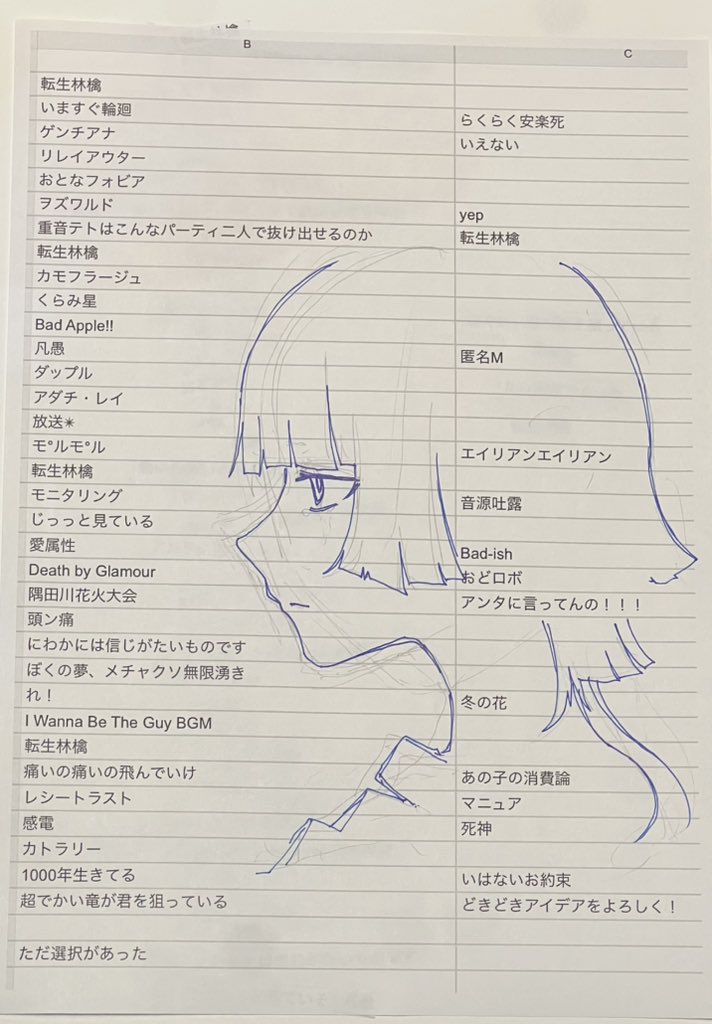 B
C
転生林檎
いますぐ輪廻
らくらく安楽死
ゲンチアナ
いえない
リレイアウター
おとなフォビア
ヲズワルド
yep
重音テトはこんなパーティ二人で抜け出せるのか
転生林檎
転生林檎
カモフラージュ
くらみ星
Bad Apple!!
凡愚
匿名M
ダップル
アダチ・レイ
放送✴
モ°ルモ°ル
エイリアンエイリアン
転生林檎
モニタリング
音源吐露
じっっと見ている
愛属性
Bad-ish
Death by Glamour
おどロボ
隅田川花火大会
アンタに言ってんの！！！
頭ン痛
にわかには信じがたいものです
ぼくの夢、メチャクソ無限湧き
れ！
冬の花
I Wanna Be The Guy BGM
転生林檎
痛いの痛いの飛んでいけ
あの子の消費論
レシートラスト
マニュア
感電
死神
カトラリー
1000年生きてる
いはないお約束
超でかい竜が君を狙っている
どきどきアイデアをよろしく！
ただ選択があった